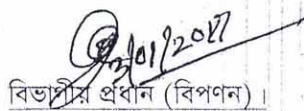 3/01/2017
বিভাগীয় প্রধান (বিপণন)।